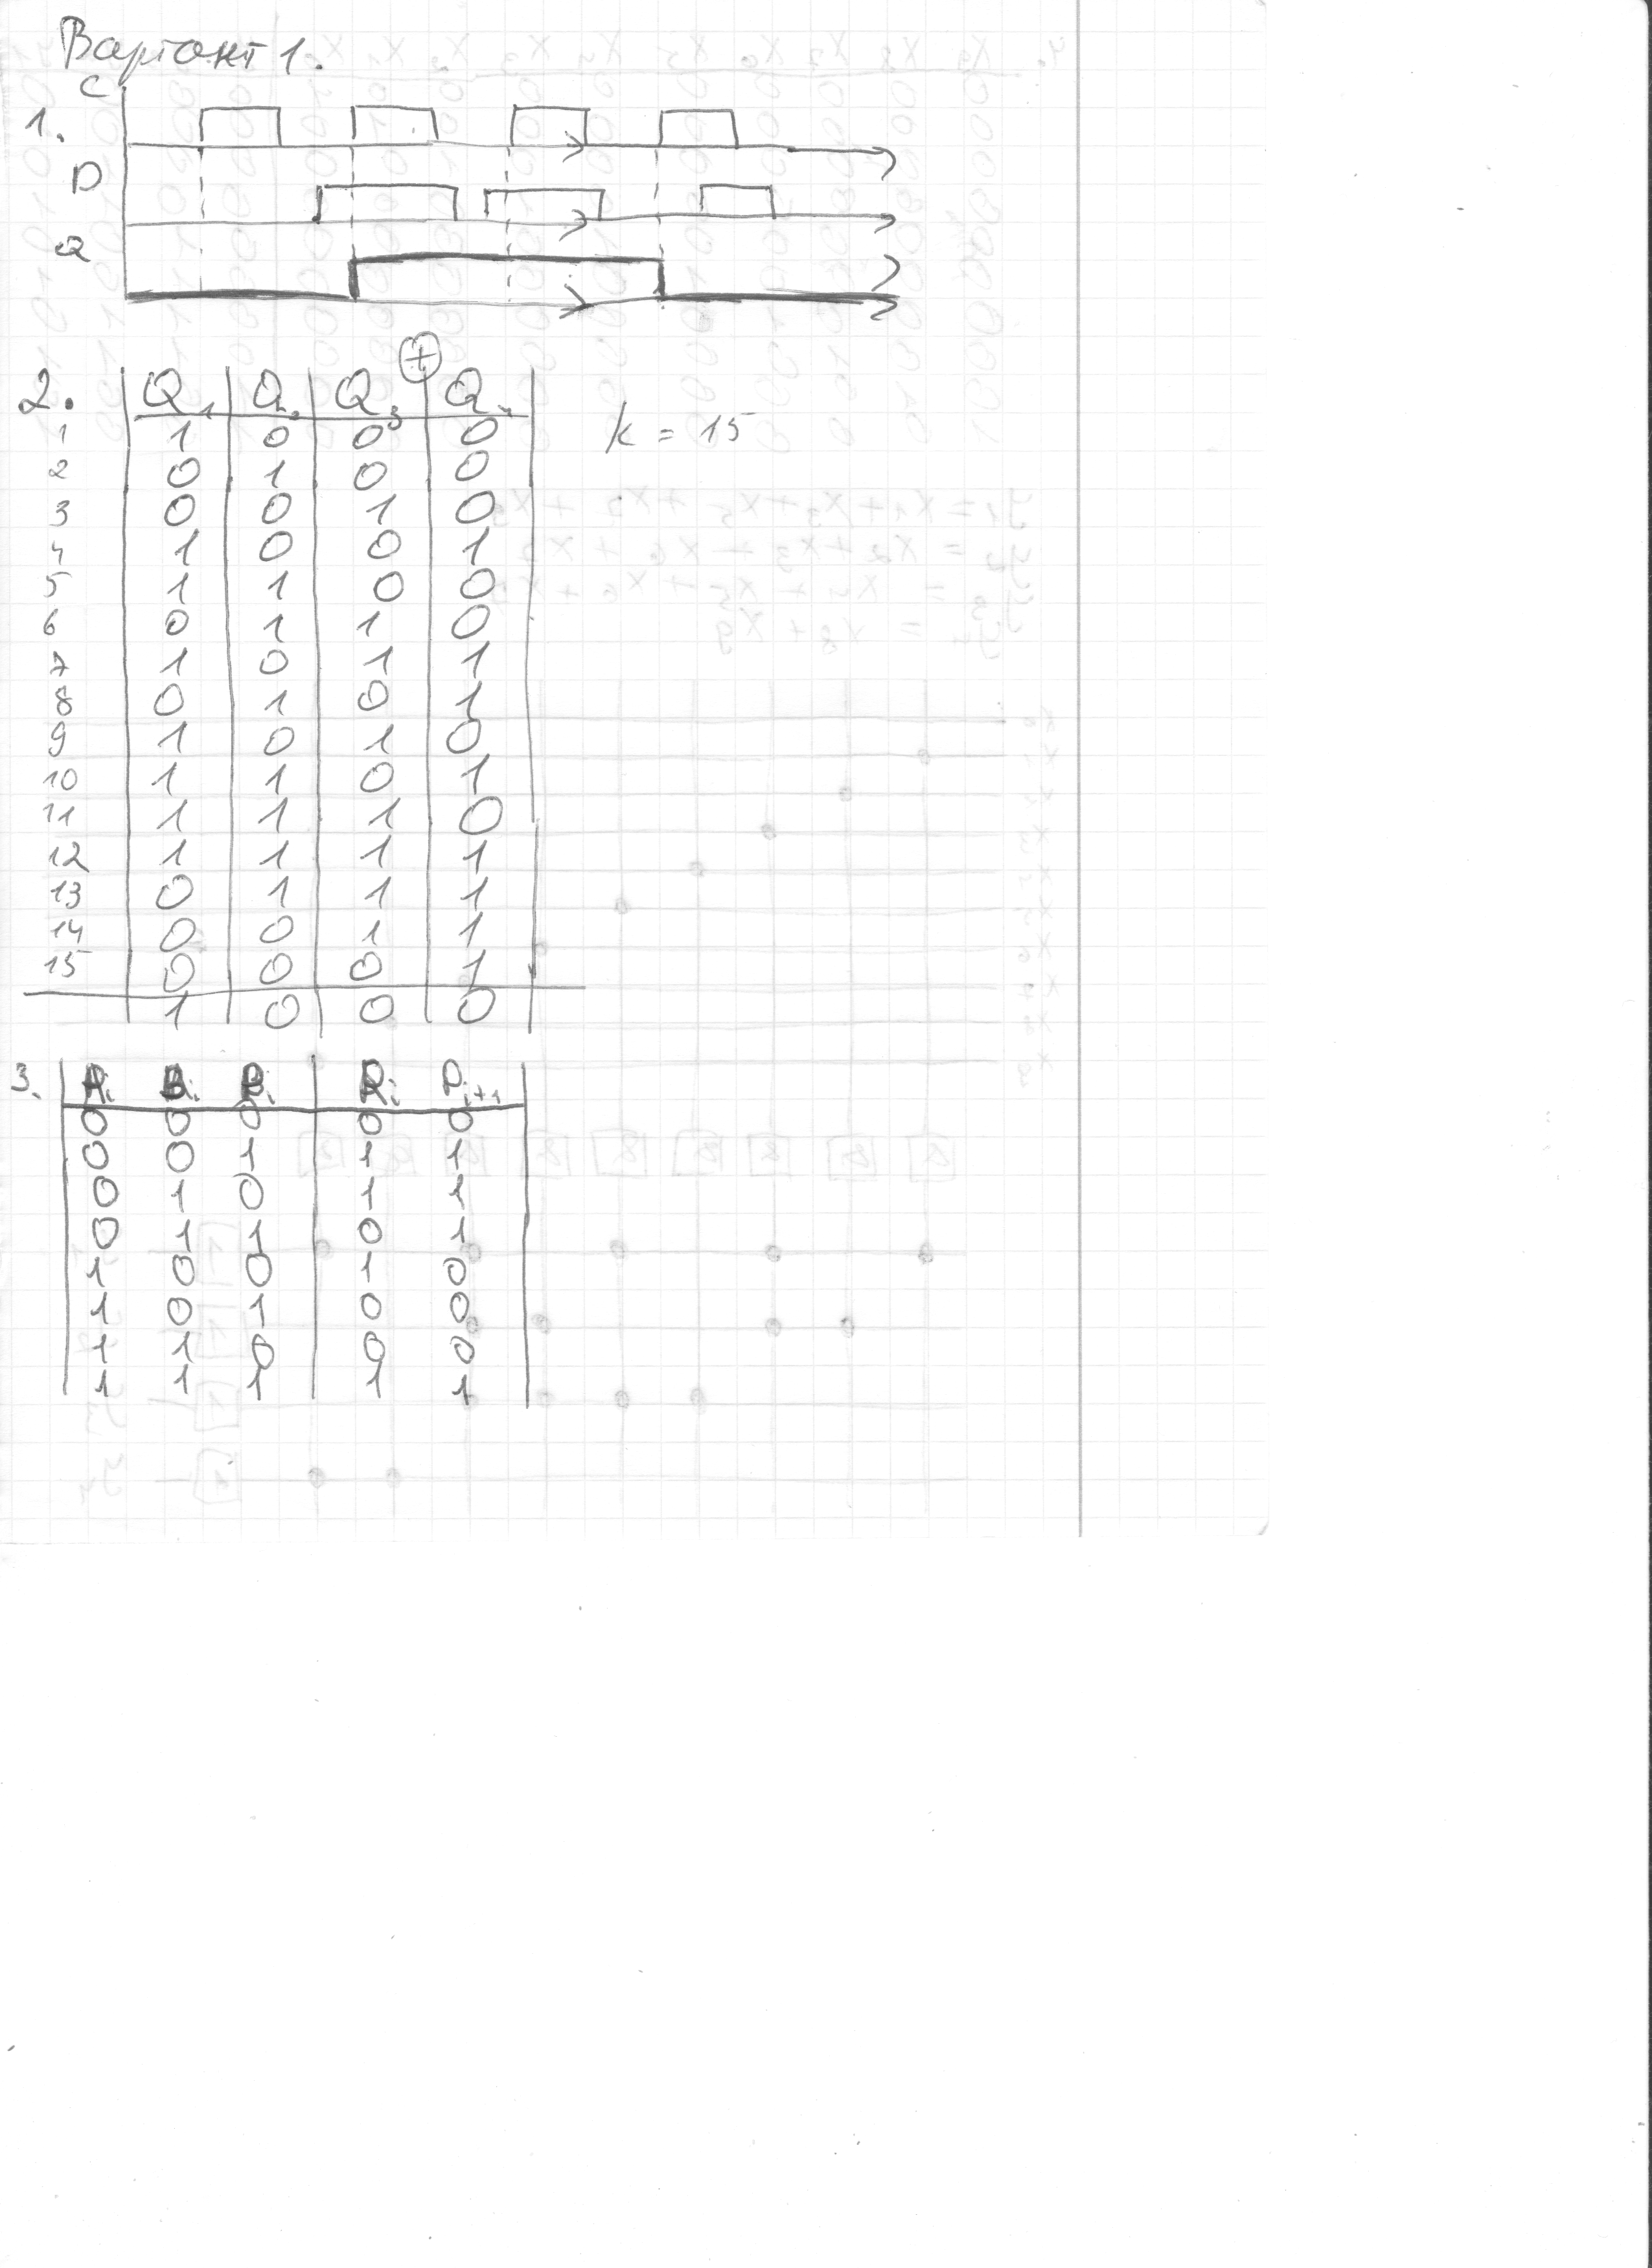 Варіант 1.
C
1.
D
Q
+
2. Q1 Q2 Q3 Q4
1 1 0 0 0 k = 15
2 0 1 0 0
3 0 0 1 0
4 1 0 0 1
5 1 1 0 0
6 0 1 1 0
7 1 0 1 1
8 0 1 0 1
9 1 0 1 0
10 1 1 0 1
11 1 1 1 0
12 1 1 1 1
13 0 1 1 1
14 0 0 1 1
15 0 0 0 1
1 0 0 0
3. Ai Bi Pi Ri Pi+1
0 0 0 0 0
0 0 1 1 1
0 1 0 1 1
0 1 1 0 1
1 0 0 1 0
1 0 1 0 0
1 1 0 0 0
1 1 1 1 1